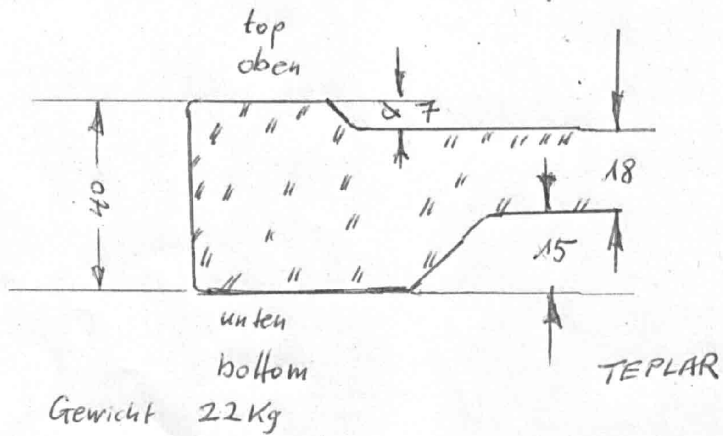 top
oben
∝ 7
40
18
15
unten
bottom
TEPLAR
Gewicht 22Kg